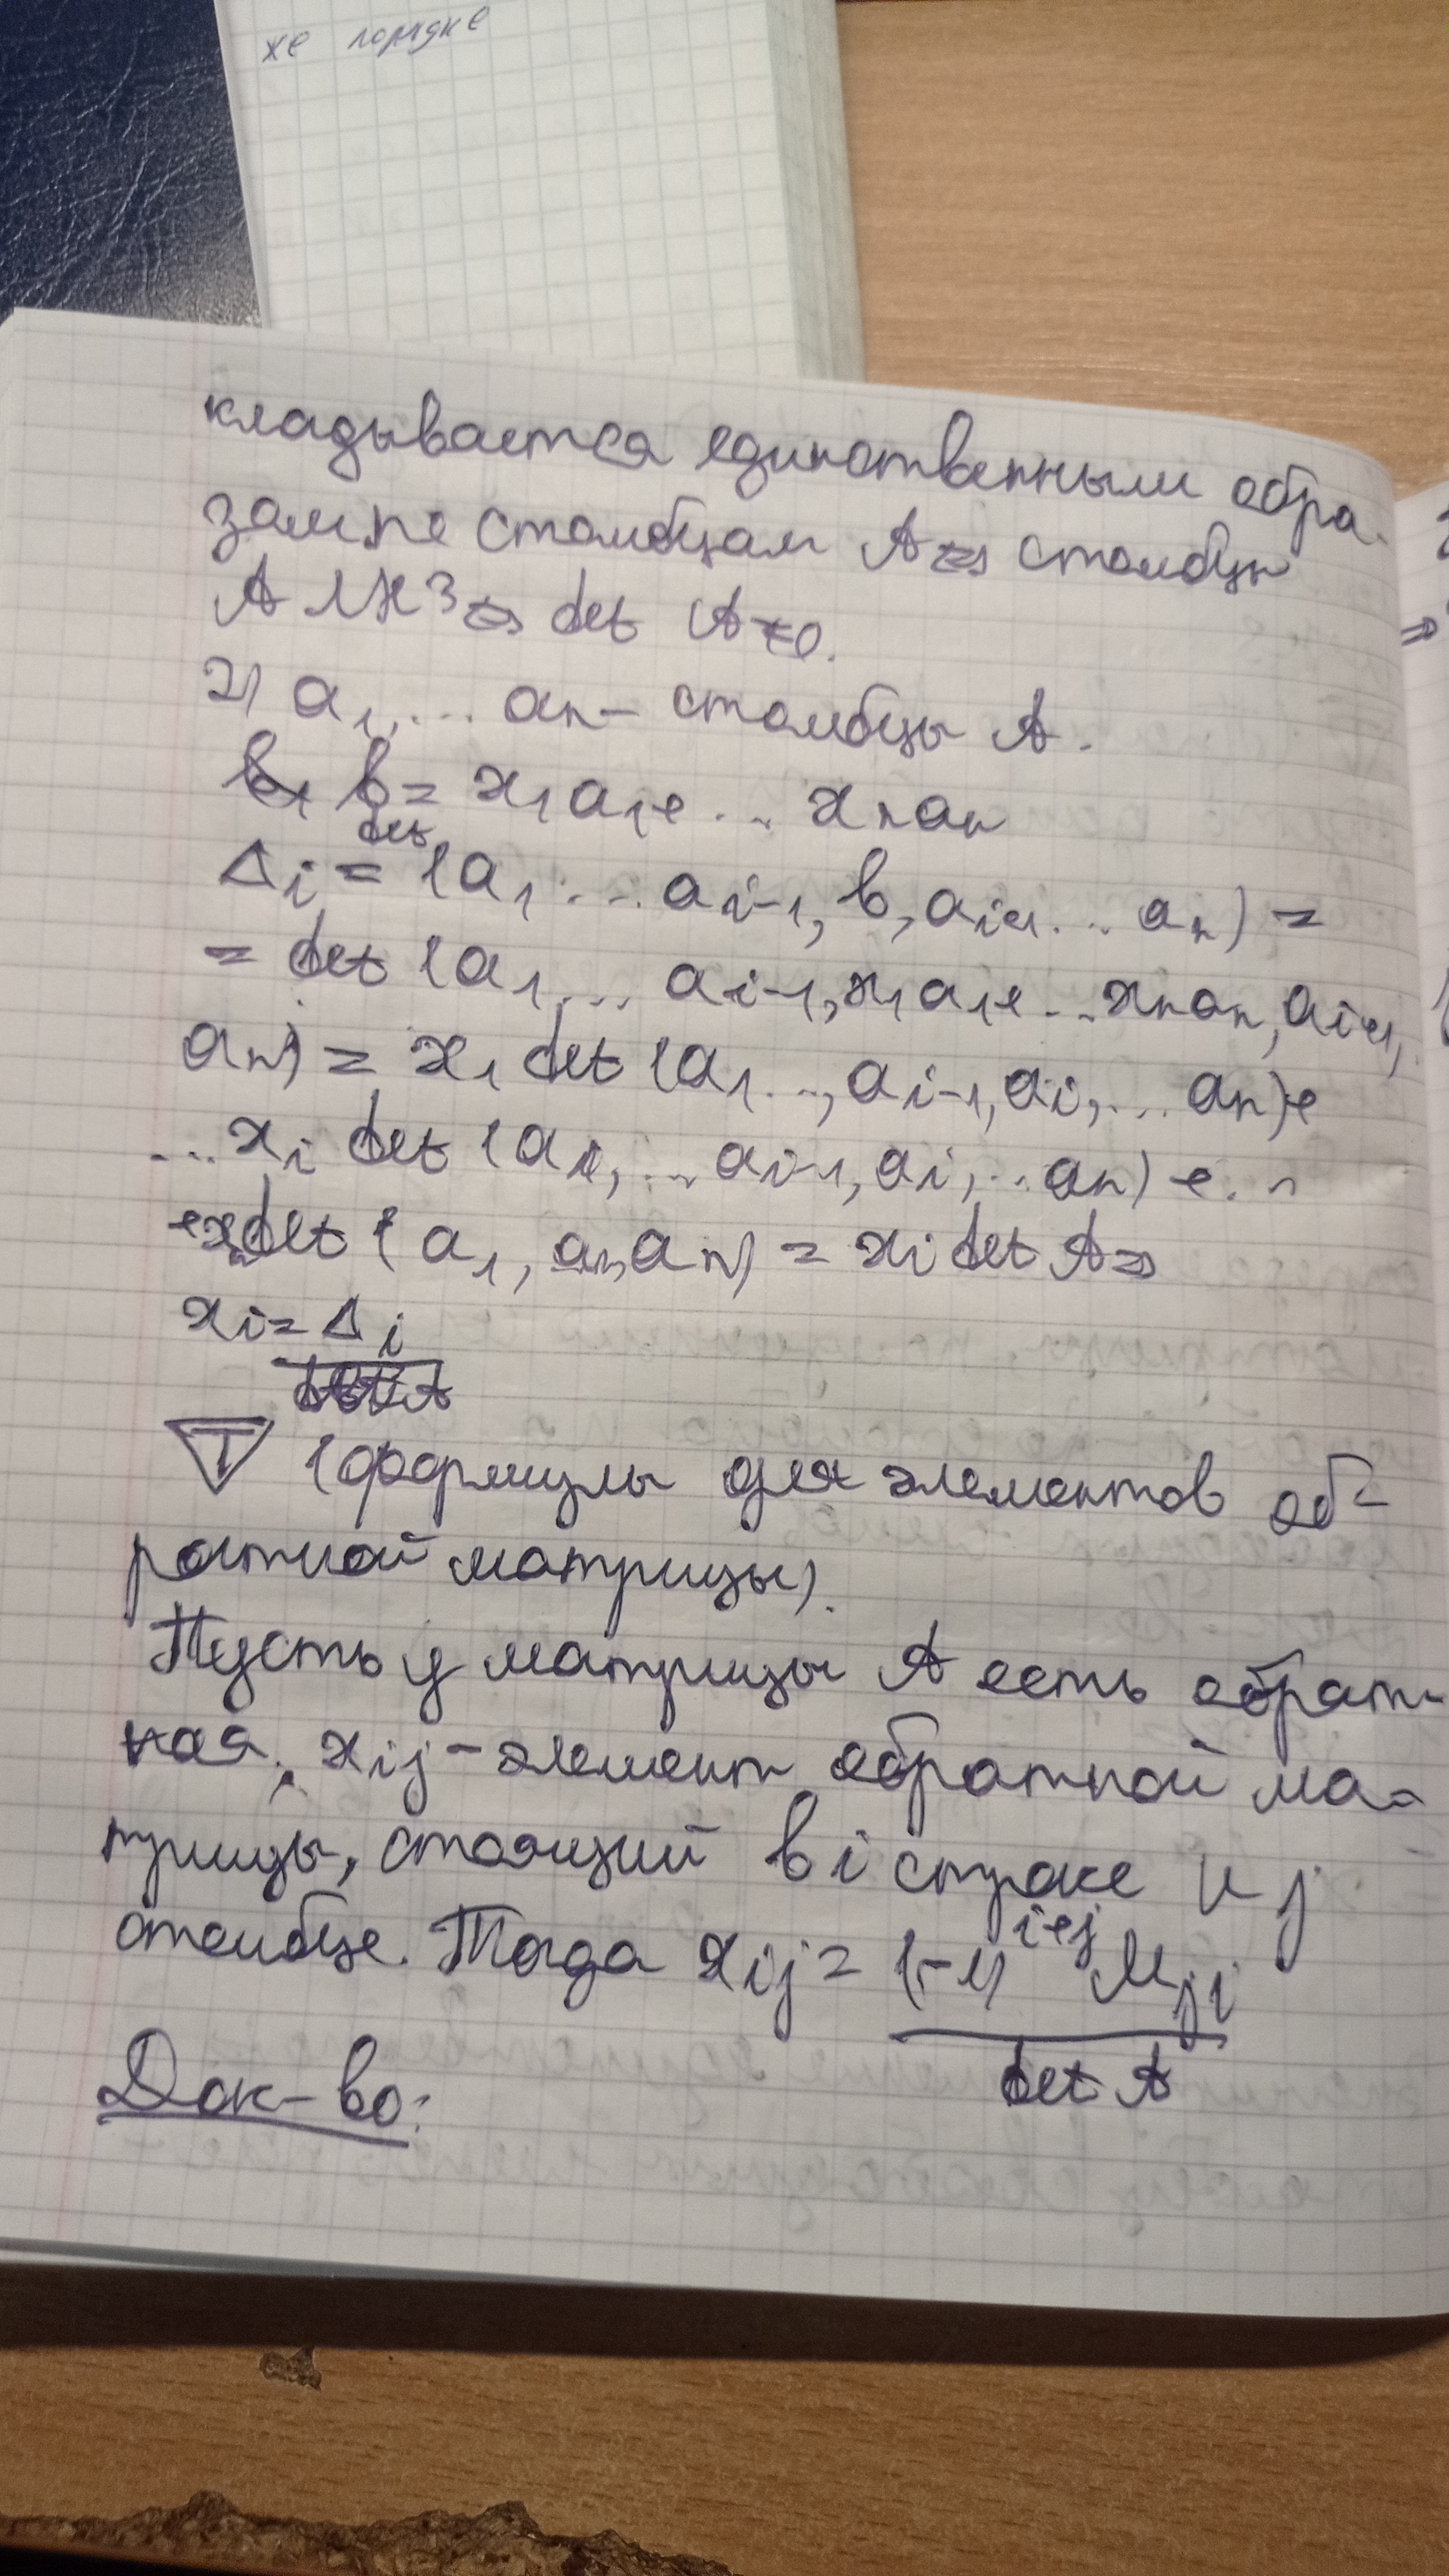 же порядке
кладывается единственным обра-
зом по столбцам A ⇔ столбцы
A ЛНЗ ⇔ det A ≠ 0.
2) a₁, ... aₙ - столбцы A.
b = x₁a₁ + ... xₙaₙ
Δᵢ = det (a₁ ... aᵢ₋₁, b, aᵢ₊₁ ... aₙ) =
= det (a₁, ... aᵢ₋₁, x₁a₁ + ... xₙaₙ, aᵢ₊₁,
aₙ) = x₁ det (a₁ ..., aᵢ₋₁, aᵢ, ... aₙ) +
... xᵢ det (a₁, ... aᵢ₋₁, aᵢ, ... aₙ) + ...
+ xₙ det (a₁, aₙ, aₙ) = xᵢ det A ⇒
xᵢ = Δᵢ
T (формулы для элементов об-
ратной матрицы).
Пусть у матрицы A есть обрат-
ная, xᵢⱼ - элемент обратной ма-
трицы, стоящий в i строке и j
столбце. Тогда xᵢⱼ = (-1)^{i+j} Mⱼᵢ
det A
Док-во: